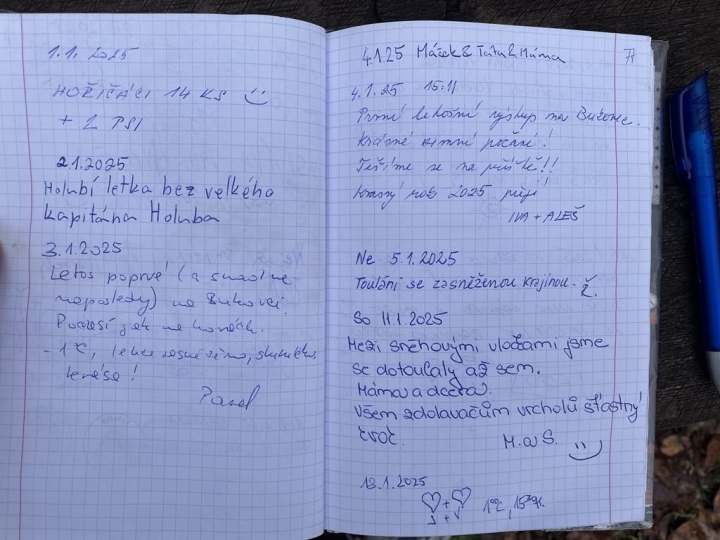 1.1. 2025
HOŘIČÁCI 14 KS
+ 2 PSI
2.1.2025
Holubí letka bez velkého
kapitána Holuba
3.1.2025
Letos poprvé (a snad ne
naposledy) na Bukovci.
Počasí jak na horách.
-1°C, lehce zasněženo,
krása!
Pavel
4.1.25 Mášek & Táta & Máma
71
4.1.25 15:11
První letošní výstup na Bukovec.
Krásné zimní počasí!
Těšíme se na příště!!
Krásný rok 2025 přejí
IVA + ALEŠ
Ne 5.1.2025
Toulání se zasněženou krajinou. Ž.
So 11.1.2025
Mezi sněhovými vločkami jsme
se dotoulaly až sem.
Máma a dcera.
Všem zdolavačům vrcholů šťastný
rok
M. a S.
18.1.2025
J + V